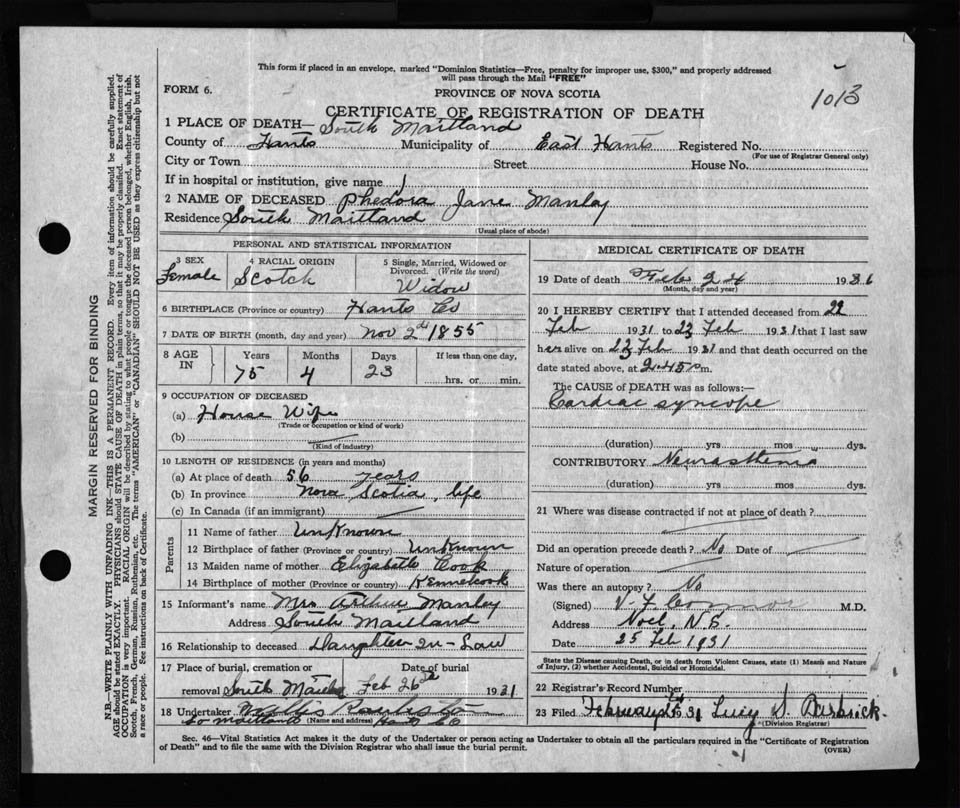 This form if placed in an envelope, marked "Dominion Statistics—Free, penalty for improper use, $300," and properly addressed
will pass through the Mail "FREE"
FORM 6.
PROVINCE OF NOVA SCOTIA
1013
CERTIFICATE OF REGISTRATION OF DEATH
1 PLACE OF DEATH— South Maitland
County of Hants Municipality of East Hants Registered No.
(For use of Registrar General only)
City or Town Street House No.
If in hospital or institution, give name
2 NAME OF DECEASED Phedora Jane Manley
Residence South Maitland
(Usual place of abode)
PERSONAL AND STATISTICAL INFORMATION
3 SEX 4 RACIAL ORIGIN 5 Single, Married, Widowed or Divorced. (Write the word)
Female Scotch Widow
6 BIRTHPLACE (Province or country) Hants Co
7 DATE OF BIRTH (month, day and year) Nov 2nd 1855
8 AGE IN Years Months Days If less than one day,
75 4 23 hrs. or min.
9 OCCUPATION OF DECEASED
(a) House Wife
(Trade or occupation or kind of work)
(b)
(Kind of industry)
10 LENGTH OF RESIDENCE (in years and months)
(a) At place of death 56 years
(b) In province Nova Scotia, life
(c) In Canada (if an immigrant)
Parents
11 Name of father UnKnown
12 Birthplace of father (Province or country) UnKnown
13 Maiden name of mother Elizabeth Cook
14 Birthplace of mother (Province or country) Kennetcook
15 Informant's name Mrs Arthur Manley
Address South Maitland
16 Relationship to deceased Daughter-In-Law
17 Place of burial, cremation or removal South Maitland Date of burial Feb 26th 1931
18 Undertaker Willis
So Maitland (Name and address) Hants Co
MEDICAL CERTIFICATE OF DEATH
19 Date of death Feb 24 1931
(Month, day and year)
20 I HEREBY CERTIFY that I attended deceased from 22
Feb 1931 to 23 Feb 1931 that I last saw
her alive on 23 Feb 1931 and that death occurred on the
date stated above, at 2.45 p m.
The CAUSE of DEATH was as follows:—
Cardiac syncope
(duration) yrs mos dys.
CONTRIBUTORY Neurasthenia
(duration) yrs mos dys.
21 Where was disease contracted if not at place of death?
Did an operation precede death? No Date of
Nature of operation
Was there an autopsy? No
(Signed) V L Connor M.D.
Address Noel, N.S.
Date 25 Feb 1931
State the Disease causing Death, or in death from Violent Causes, state (1) Means and Nature
of Injury, (2) whether Accidental, Suicidal or Homicidal.
22 Registrar's Record Number
23 Filed February 31 Lucy S.
(Division Registrar)
Sec. 46—Vital Statistics Act makes it the duty of the Undertaker or person acting as Undertaker to obtain all the particulars required in the "Certificate of Registration
of Death" and to file the same with the Division Registrar who shall issue the burial permit.
(OVER)
MARGIN RESERVED FOR BINDING
N.B.—WRITE PLAINLY WITH UNFADING INK—THIS IS A PERMANENT RECORD. Every item of information should be carefully supplied.
AGE should be stated EXACTLY. PHYSICIANS should STATE CAUSE OF DEATH in plain terms, so that it may be properly classified. Exact statement of
OCCUPATION is very important. RACIAL ORIGIN will be described by stating to what people or tongue the deceased person belonged, whether English, Irish,
Scotch, French, German, Russian, Ruthenian, etc. The terms "AMERICAN" or "CANADIAN" SHOULD NOT BE USED as they express citizenship but not
a race or people. See instructions on back of Certificate.